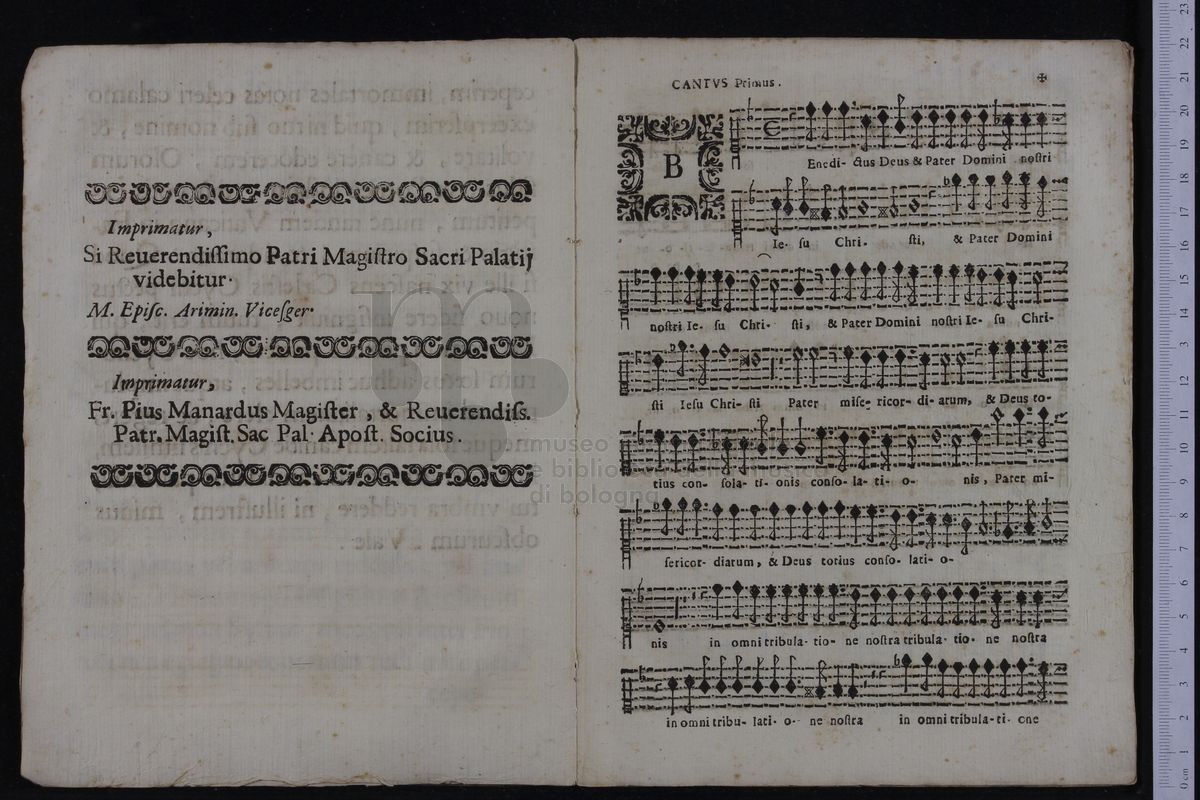 Imprimatur,
Si Reuerendissimo Patri Magistro Sacri Palatij
videbitur.
M. Episc. Arimin. Vicesger.
Imprimatur,
Fr. Pius Manardus Magister, & Reuerendiss.
Patr. Magist. Sac Pal. Apost. Socius.
CANTVS Primus.
B
Enedi- ctus Deus & Pater Domini nostri
Ie- su Chri- sti, & Pater Domini
nostri Ie- su Chri- sti, & Pater Domini nostri Ie- su Chri-
sti Iesu Chri- sti Pater mise- ricor- di- arum, & Deus to-
tius con- sola- ti- onis conso- la- ti- o- nis, Pater mi-
sericor- diarum, & Deus totius conso- lati- o-
nis in omni tribula- tio- ne nostra tribula- tio- ne nostra
in omni tribu- lati- o- ne nostra in omni tribula- ti- one
museo
e biblioteca
di bologna
0 cm 1 2 3 4 5 6 7 8 9 10 11 12 13 14 15 16 17 18 19 20 21 22 23